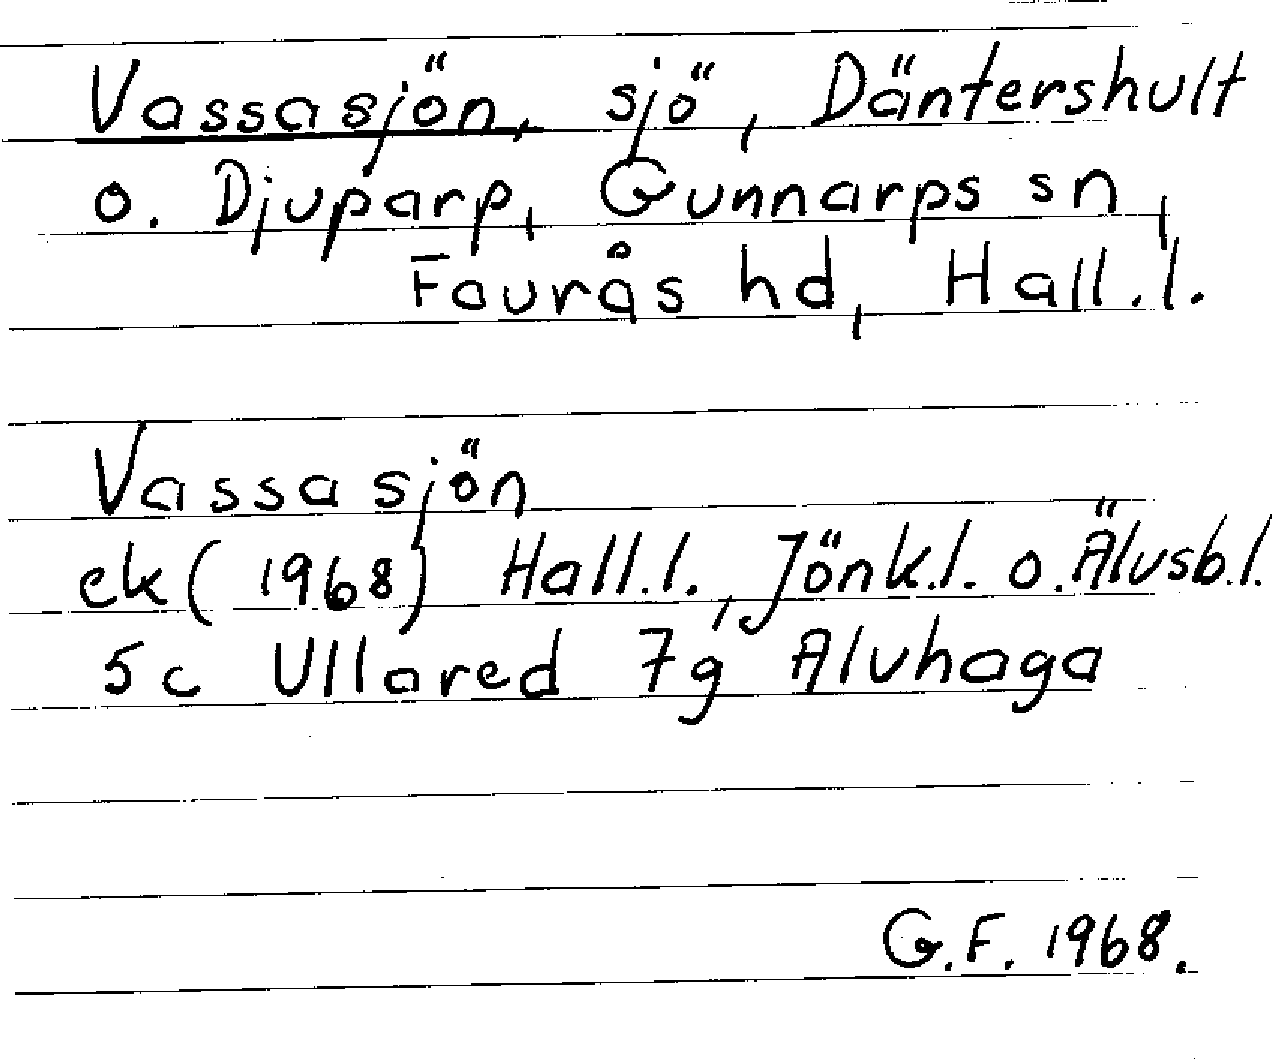 Vassasjön, sjö, Däntershult
o. Djuparp, Gunnarps sn,
Faurås hd, Hall.l.
Vassasjön
ek (1968) Hall.l., Jönk.l. o. Älvsb.l.
5c Ullared 7g Älvhaga
G.F. 1968.